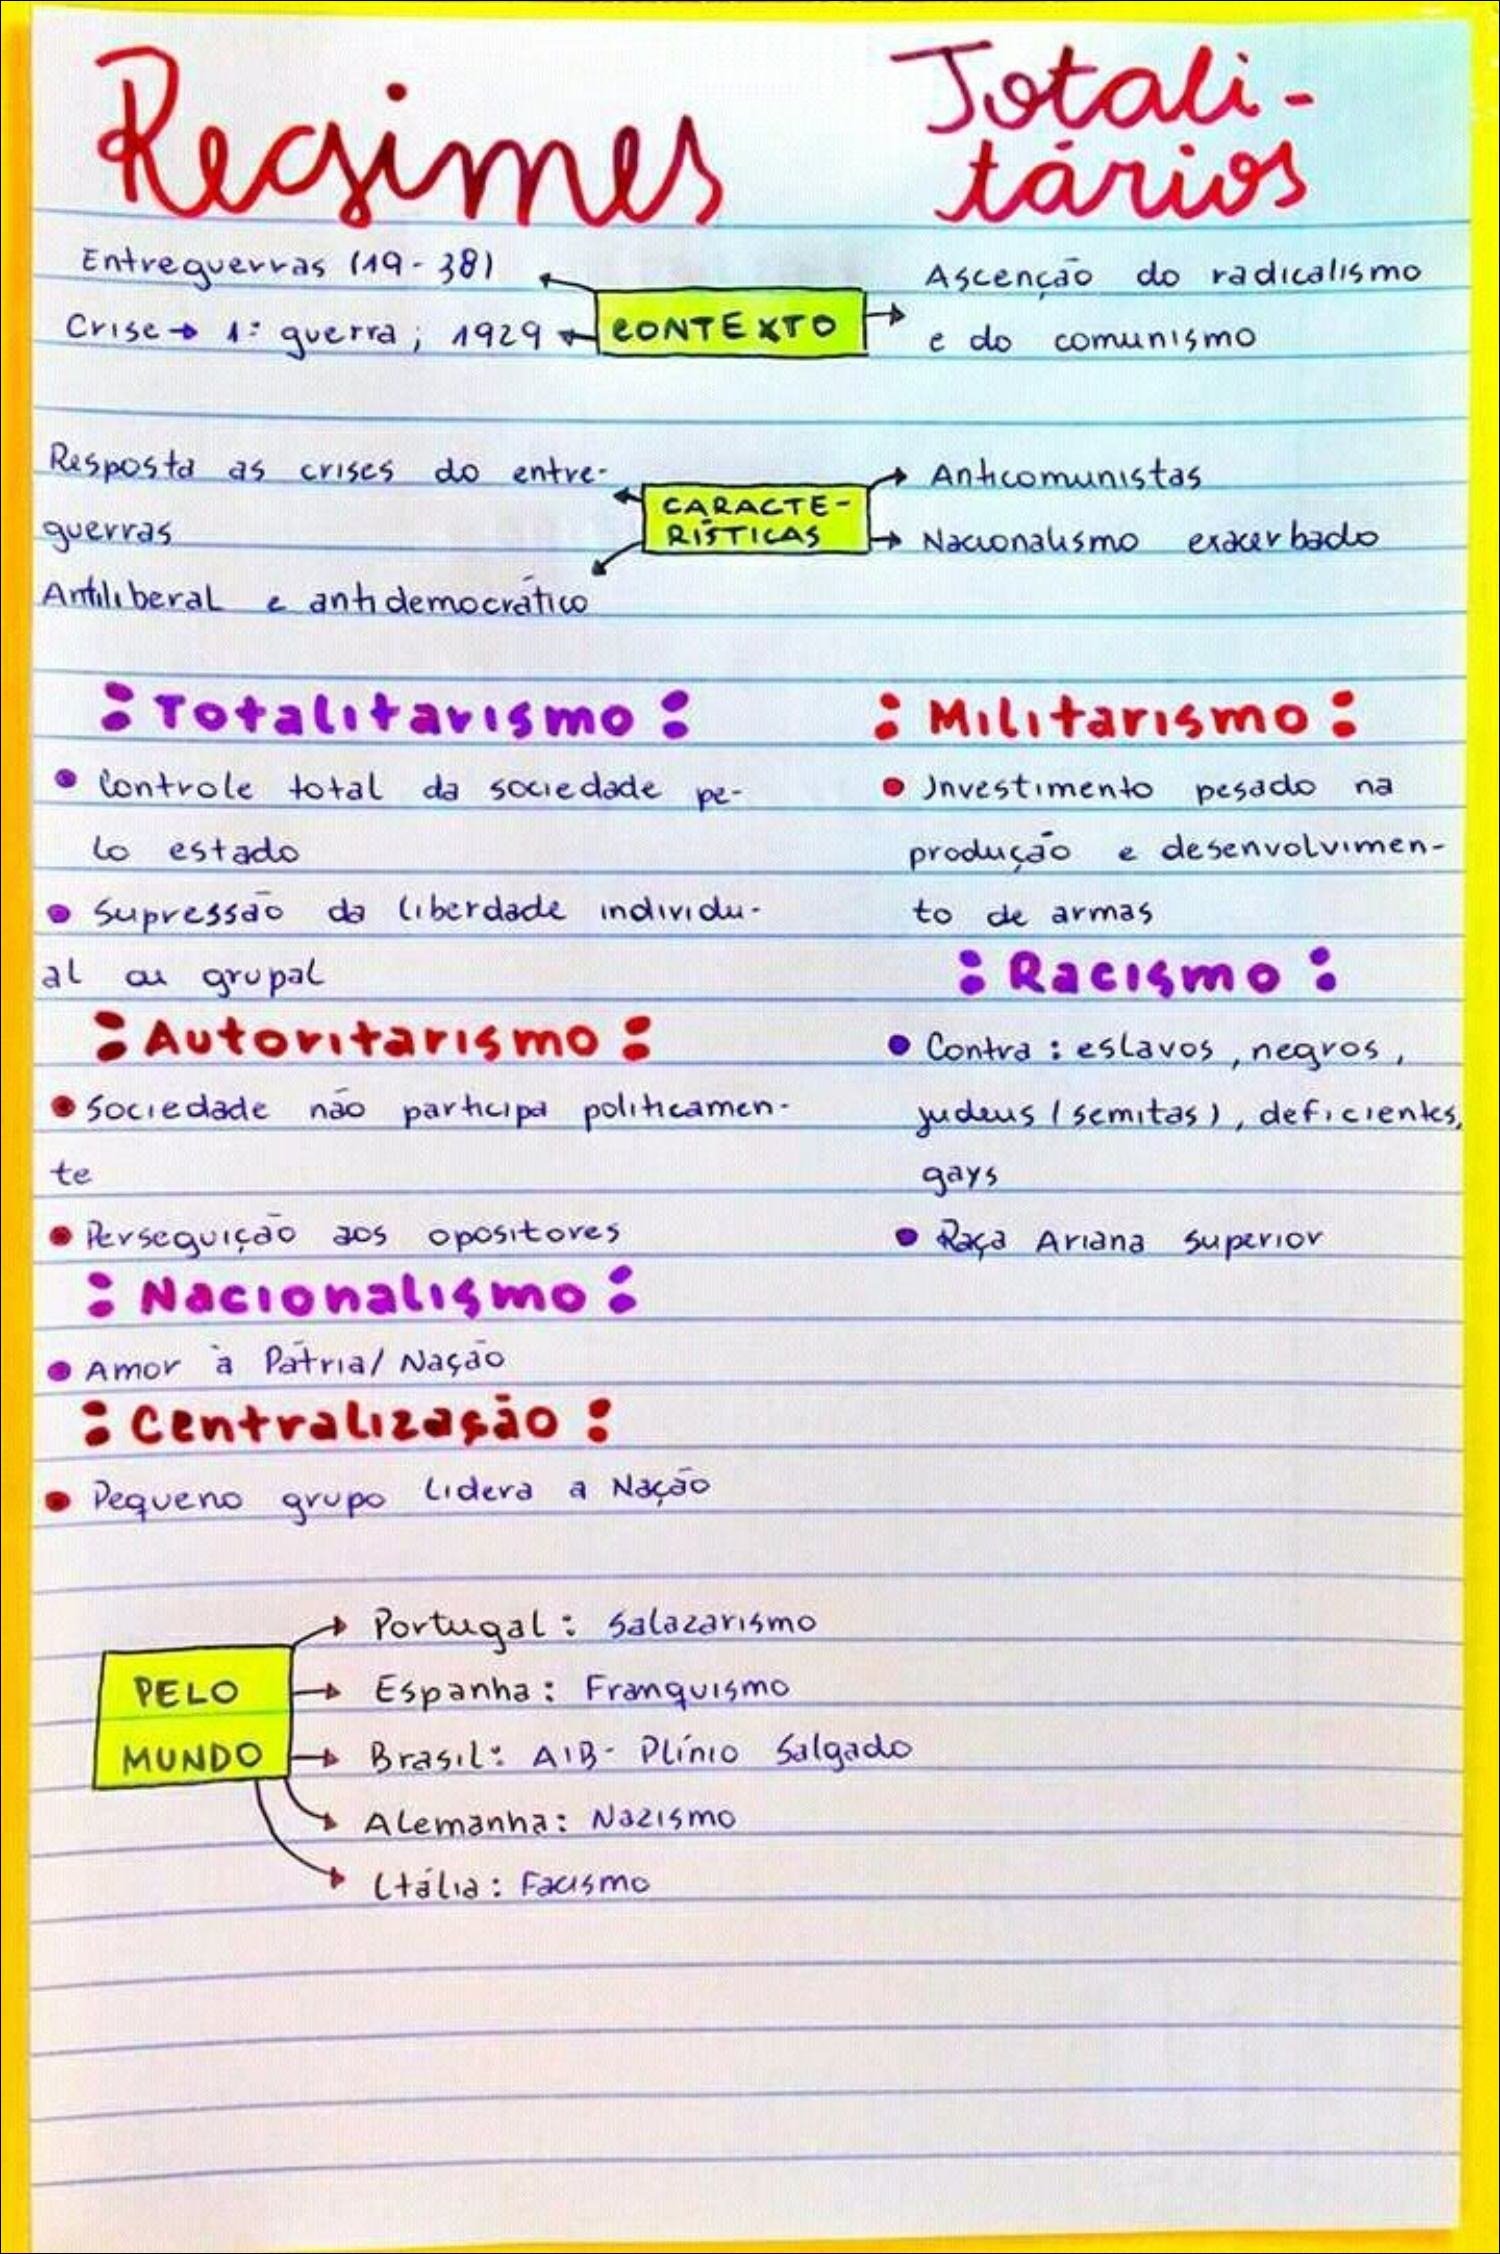 Regimes Totali-
tários
Entreguerras (19-38)
Crise → 1ª guerra; 1929
CONTEXTO
Ascenção do radicalismo
e do comunismo
Resposta as crises do entre-
guerras
Antiliberal e antidemocrático
CARACTE-
RÍSTICAS
Anticomunistas
Nacionalismo exacerbado
: Totalitarismo :
• Controle total da sociedade pe-
lo estado
• Supressão da liberdade individu-
al ou grupal
: Autoritarismo :
• Sociedade não participa politicamen-
te
• Perseguição aos opositores
: Nacionalismo :
• Amor à Pátria/Nação
: Centralização :
• Pequeno grupo lidera a Nação
: Militarismo :
• Investimento pesado na
produção e desenvolvimen-
to de armas
: Racismo :
• Contra: eslavos, negros,
judeus (semitas), deficientes,
gays
• Raça Ariana superior
PELO
MUNDO
Portugal: Salazarismo
Espanha: Franquismo
Brasil: AIB- Plínio Salgado
Alemanha: Nazismo
Itália: Facismo